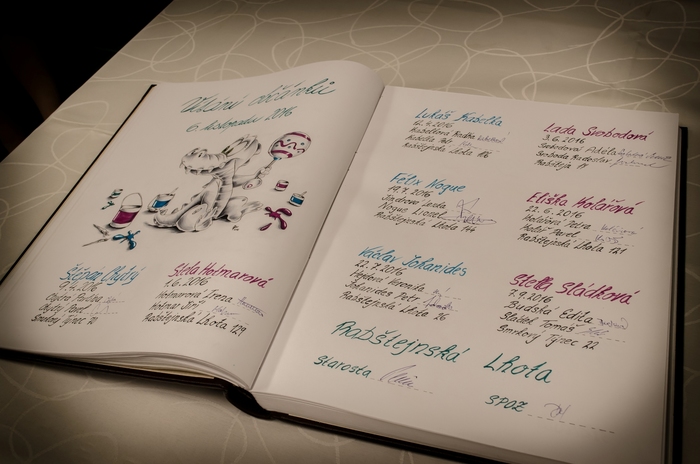 Vítání občánků
6. listopadu 2016
Štěpán Chytrý
9.4.2016
Chytrý Pavel
Smrkový Týnec
Stela Holmarová
1.6.2016
Holmarová Irena
Holmar Jiří
Rabštejnská Lhota 129
Lukáš Kabella
2016
Kabellová Radka
Kabella Petr
Rabštejnská Lhota 116
Lada Svobodová
3.6.2016
Svobodová Adéla
Svoboda Radoslav
Rabštejn
Félix Nogue
19.7.2016
Jindrová Lenka
Nogue Lionel
Rabštejnská Lhota 144
Eliška Kolářová
22.6.2016
Kolářová Petra
Kolář Pavel
Rabštejnská Lhota 121
Václav Johanides
22.7.2016
Veronika
Johanides Petr
Rabštejnská Lhota 26
Stella Sládková
7.9.2016
Budská Edita
Sládek Tomáš
Smrkový Týnec 22
Rabštejnská Lhota
Starosta
SPOZ